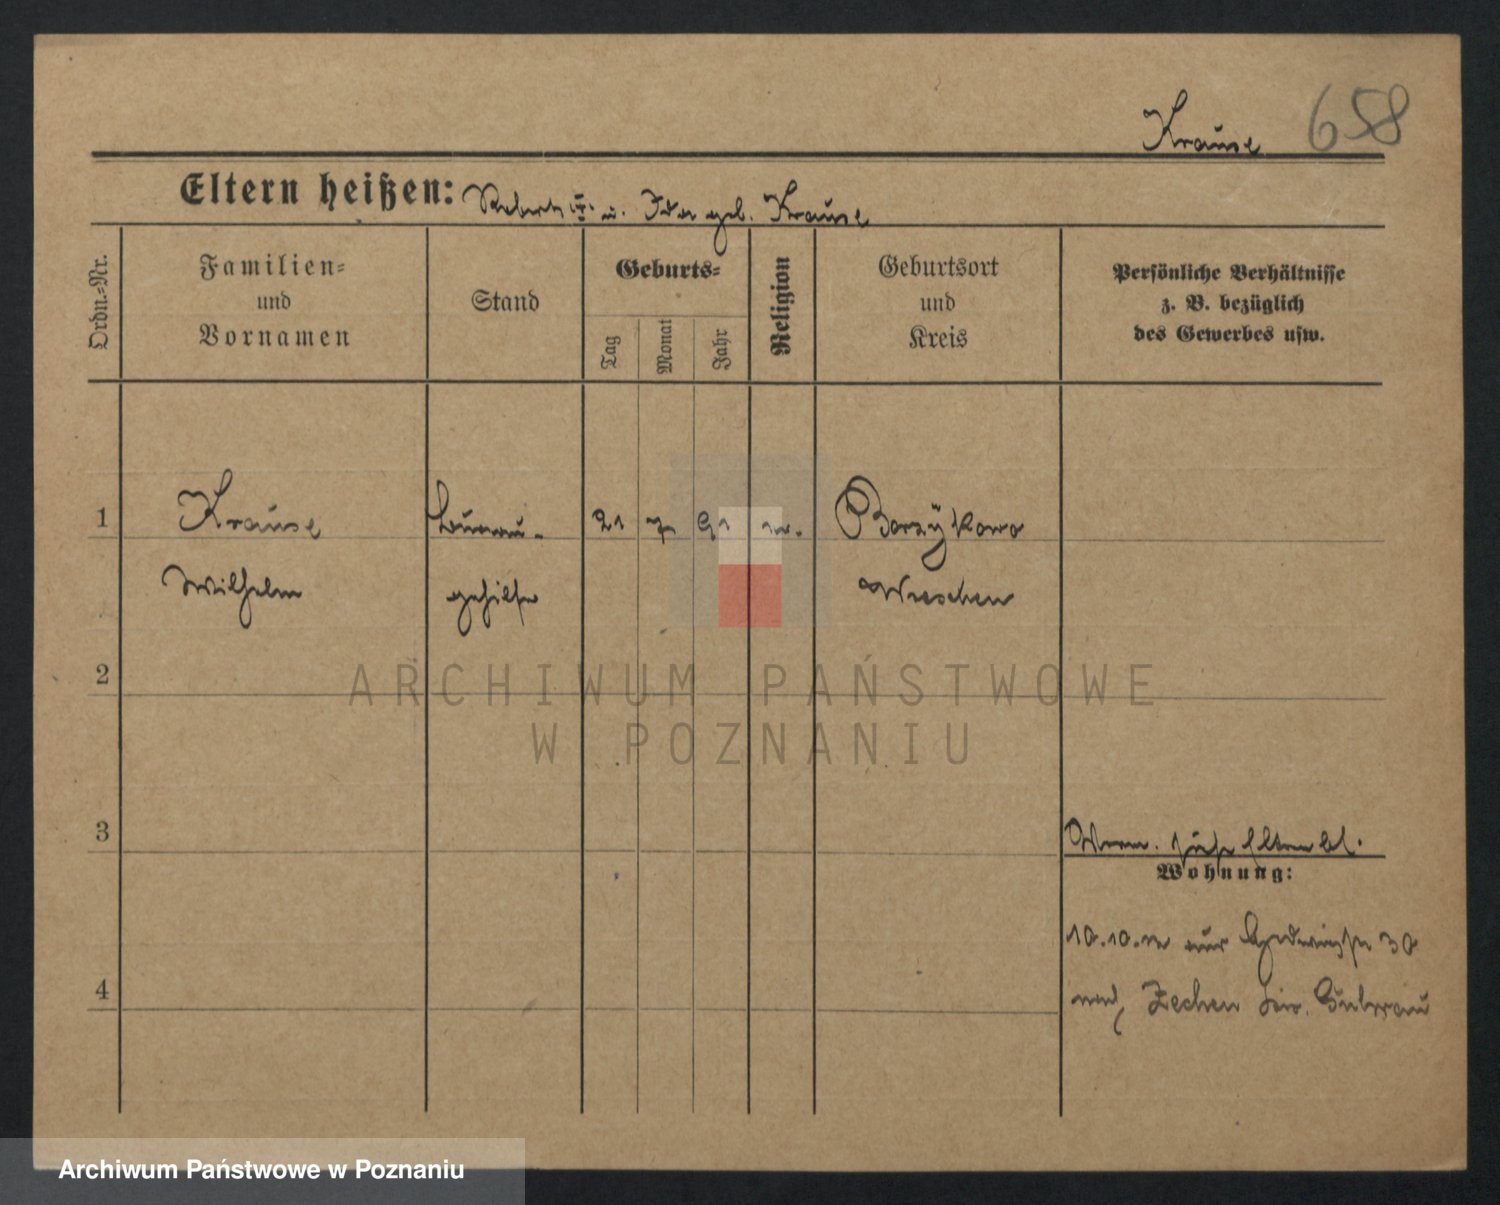 Krause 658
Eltern heißen: Robert u. Ida geb. Krause
Ordn.=Nr.
Familien=
und
Vornamen
Stand
Geburts=
Tag
Monat
Jahr
Religion
Geburtsort
und
Kreis
Persönliche Verhältnisse
z. B. bezüglich
des Gewerbes usw.
1 Krause Bureau- 21 7 91 Borzykowo
Wilhelm gehilfe Wreschen
2
ARCHIWUM PAŃSTWOWE
W POZNANIU
3
Verm. siehe Elternbl.
Wohnung:
10.10. 30
4
nach Zechen Kr. Guhrau
Archiwum Państwowe w Poznaniu